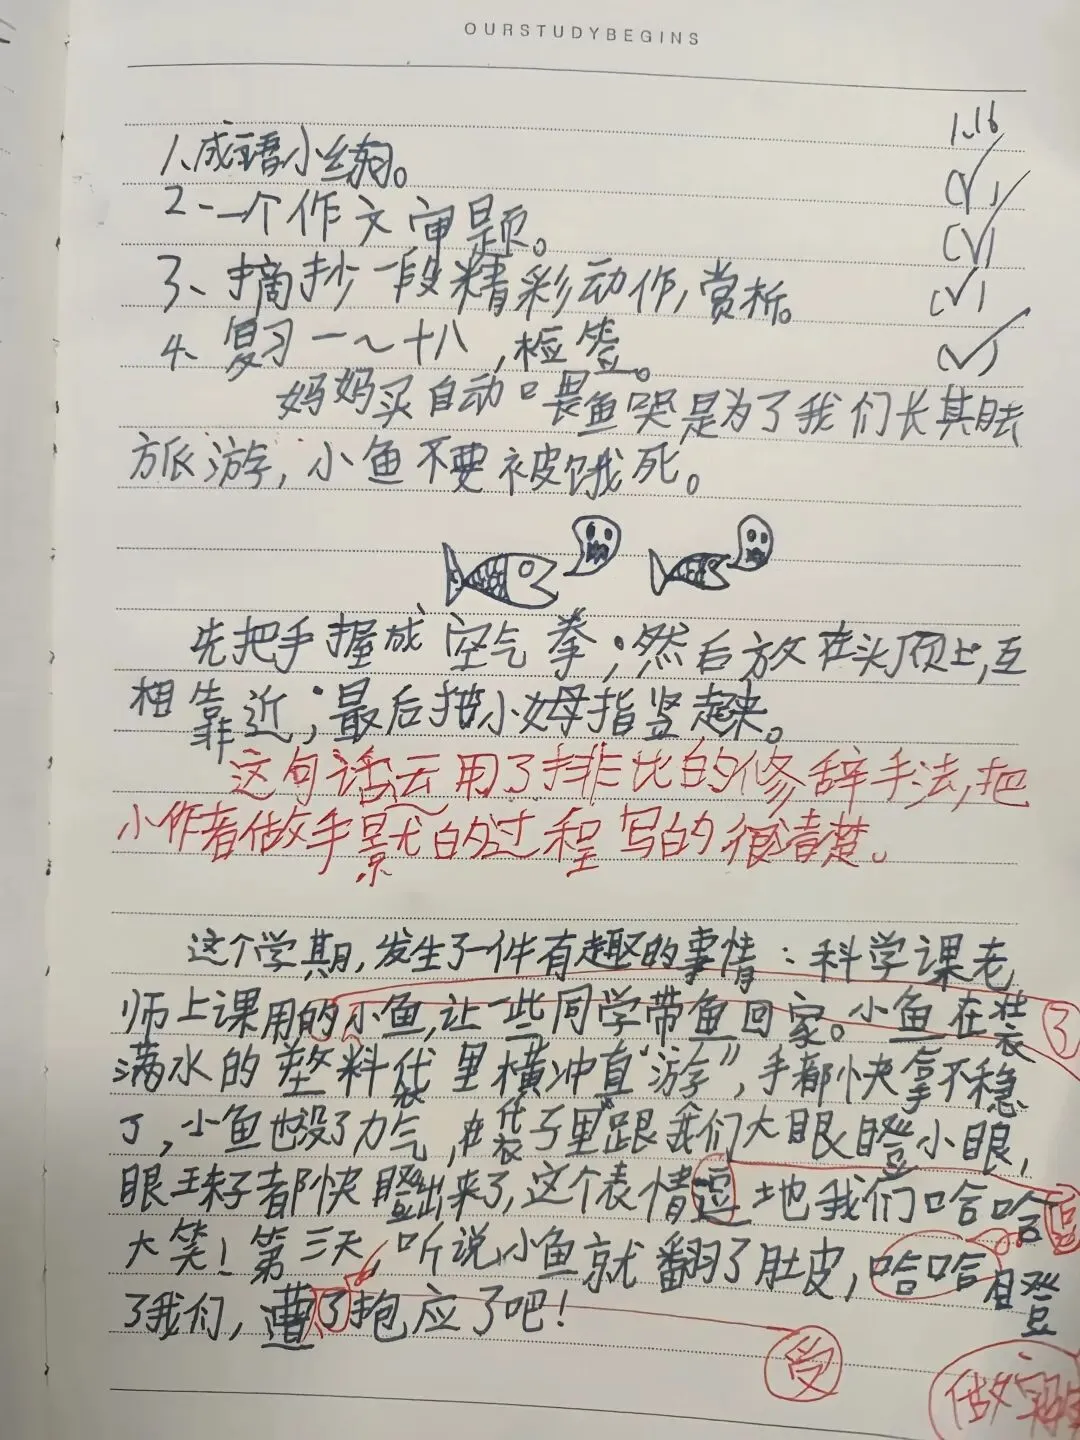 OURSTUDYBEGINS
1.16
1、成语小练。 (√)
2、一个作文审题。 (√)
3、摘抄一段精彩动作,赏析。 (√)
4、复习一~十八,检签。 (√)
妈妈买自动喂鱼器是为了我们长期去
旅游,小鱼不要被饿死。
先把手握成空气拳;然后放在头顶上,互
相靠近;最后把小姆指竖起来。
这句话运用了排比的修辞手法,把
小作者做手影的过程写的很清楚。
这个学期,发生了一件有趣的事情:科学课老
师上课用的小鱼,让一些同学带鱼回家。小鱼在装
3
满水的塑料袋里横冲直“游”,手都快拿不稳
了,小鱼也没了力气,在袋子里跟我们大眼瞪小眼,
眼珠子都快瞪出来了,这个表情逗地我们哈哈
逗
大笑!第三天,听说小鱼就翻了肚皮,哈哈瞪
了我们,遭了抱应了吧!
受
做